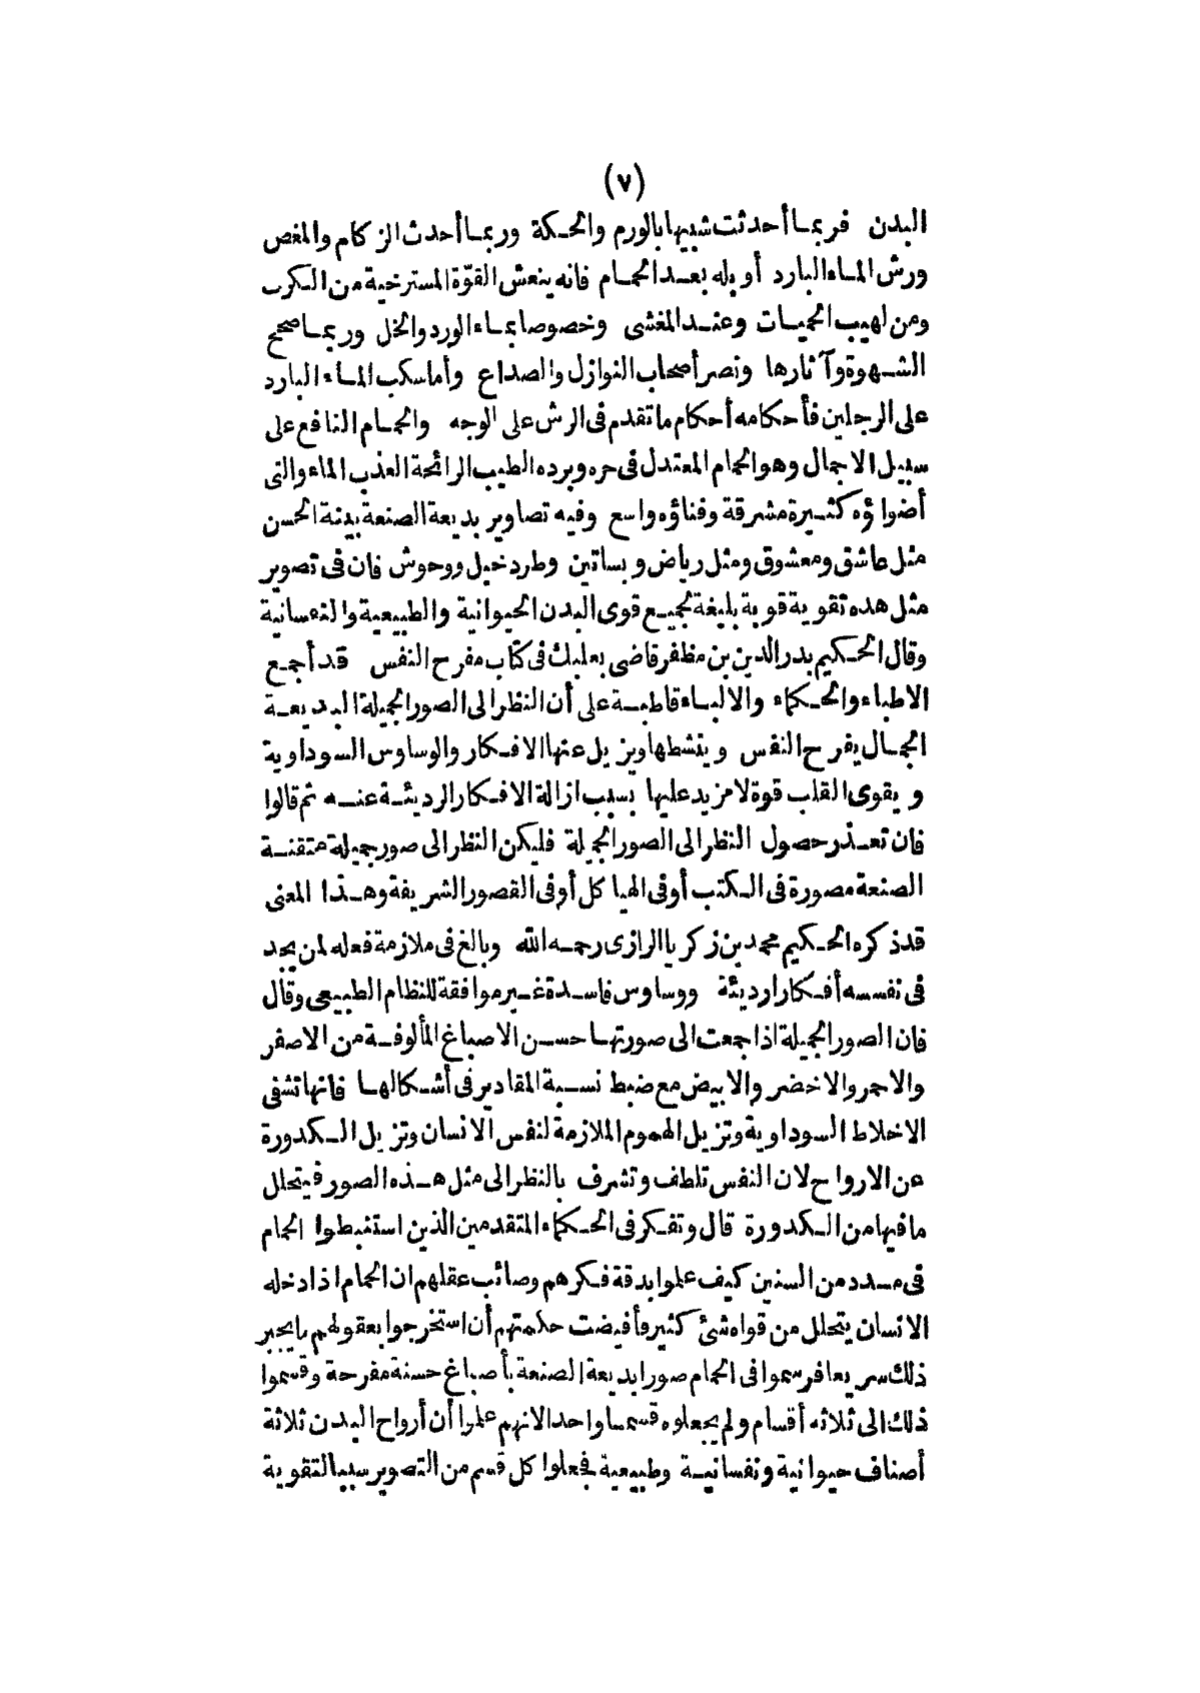 (٧)
البدن فربما أحدثت شبيها بالورم والحكة وربما أحدث الزكام والمغص
ورش الماء البارد أو بله بعد الحمام فانه ينعش القوّة المسترخية من الكرب
ومن لهيب الحميات وعند المغشى وخصوصا بماء الورد والخل وربما صحح
الشهوة وآثارها ونصر أصحاب النوازل والصداع وأما سكب الماء البارد
على الرجلين فأحكامه أحكام ما تقدم فى الرش على الوجه والحمام النافع على
سبيل الاجمال وهو الحمام المعتدل فى حره وبرده الطيب الرائحة العذب الماء والتى
أضواؤه كثيرة مشرقة وفناؤه واسع وفيه تصاوير بديعة الصنعة بينة الحسن
مثل عاشق ومعشوق ومثل رياض وبساتين وطرد خيل ووحوش فان فى تصوير
مثل هذه تقوية قوية بليغة لجميع قوى البدن الحيوانية والطبيعية والنفسانية
وقال الحكيم بدر الدين بن مظفر قاضى بعلبك فى كتاب مفرح النفس قد أجمع
الاطباء والحكماء والالباء قاطبة على أن النظر الى الصور الجميلة البديعة
الجمال يفرح النفس وينشطها ويزيل عنها الافكار والوساوس السوداوية
ويقوى القلب قوة لا مزيد عليها بسبب ازالة الافكار الرديئة عنه ثم قالوا
فان تعذر حصول النظر الى الصور الجميلة فليكن النظر الى صور جميلة متقنة
الصنعة مصورة فى الكتب أو فى الهياكل أو فى القصور الشريفة وهذا المعنى
قد ذكره الحكيم محمد بن زكريا الرازى رحمه الله وبالغ فى ملازمة فعله لمن يجد
فى نفسه أفكارا رديئة ووساوس فاسدة غير موافقة للنظام الطبيعى وقال
فان الصور الجميلة اذا جمعت الى صورتها حسن الاصباغ المألوفة من الاصفر
والاحمر والاخضر والابيض مع ضبط نسبة المقادير فى أشكالها فانها تشفى
الاخلاط السوداوية وتزيل الهموم الملازمة لنفس الانسان وتزيل الكدورة
عن الارواح لان النفس تلطف وتشرف بالنظر الى مثل هذه الصور فيتحلل
ما فيها من الكدورة قال وتفكر فى الحكماء المتقدمين الذين استنبطوا الحمام
فى مدد من السنين كيف علموا بدقة فكرهم وصائب عقلهم ان الحمام اذا دخله
الانسان يتحلل من قواه شئ كثير وأفيضت حكمتهم أن استخرجوا بعقولهم ما يجبر
ذلك سريعا فرسموا فى الحمام صورا بديعة الصنعة بأصباغ حسنة مفرحة وقسموا
ذلك الى ثلاثه أقسام ولم يجعلوه قسما واحدا لانهم علموا أن أرواح البدن ثلاثة
أصناف حيوانية ونفسانية وطبيعية فجعلوا كل قسم من التصوير سببا لتقوية